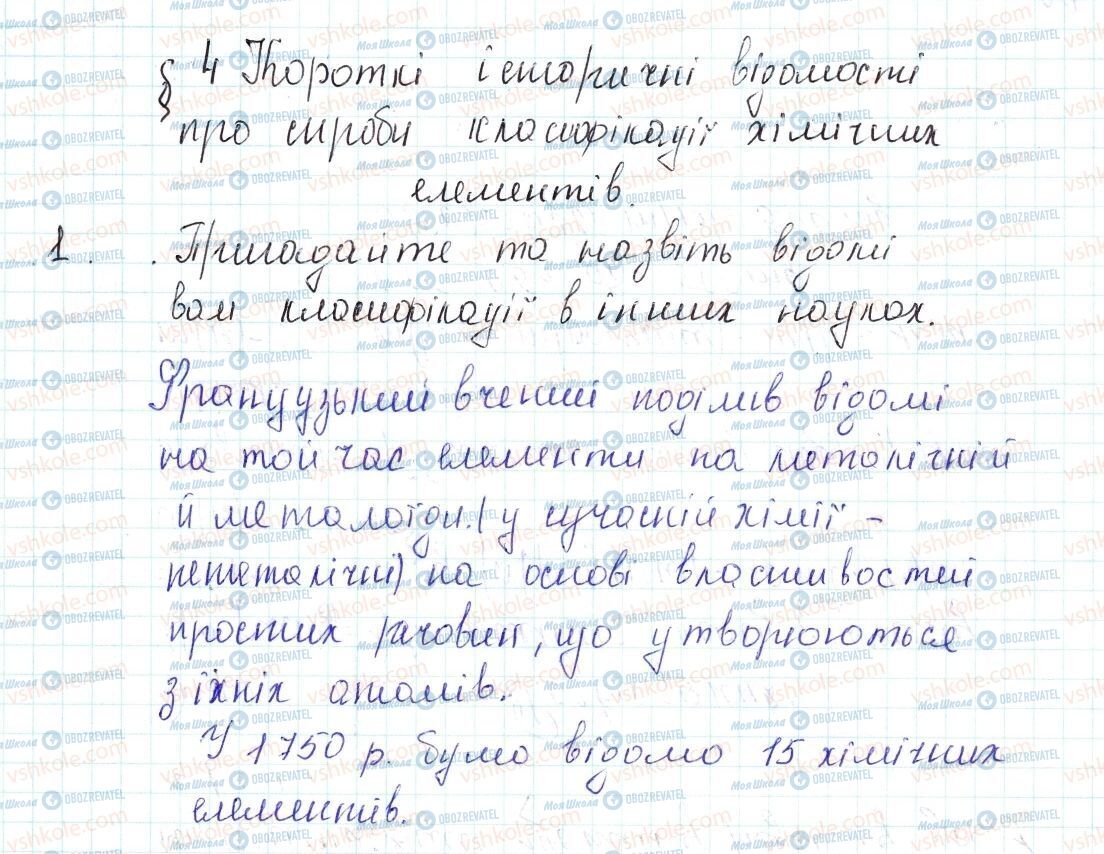 § 4 Короткі історичні відомості
про спроби класифікації хімічних
елементів.
1. Пригадайте та назвіть відомі
вам класифікації в інших науках.
Французький вчений поділив відомі
на той час елементи на металічній
й металоїди. (у сучасній хімії -
неметалічні) на основі властивостей
простих речовин, що утворюються
з їхніх атомів.
У 1750 р. було відомо 15 хімічних
елементів.